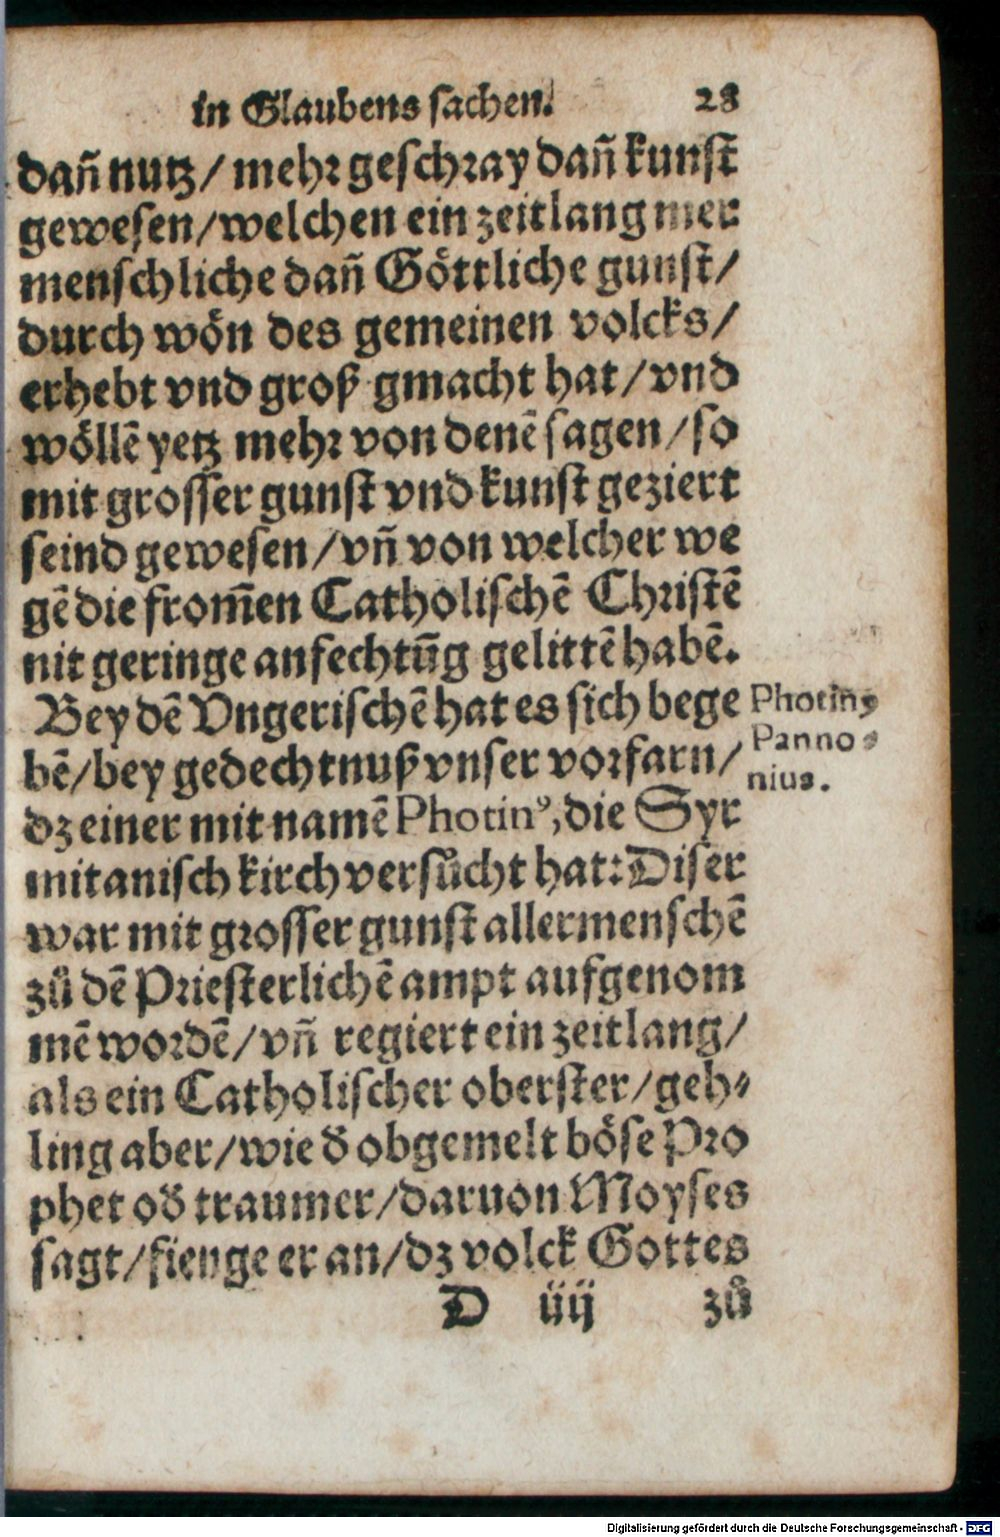 in Glaubens sachen. 28
dañ nutz/ mehr geschray dañ kunst
gewesen/welchen ein zeitlang mer
menschliche dañ Göttliche gunst/
durch wön des gemeinen volcks/
erhebt vnd groß gmacht hat/vnd
wöllē yetz mehr von denē sagen/so
mit grosser gunst vnd kunst geziert
seind gewesen/vñ von welcher we
gē die from̃en Catholischē Christē
nit geringe anfechtũg gelittē habē.
Bey dē Vngerischē hat es sich bege
bē/bey gedechtnuß vnser vorfarn/
dz einer mit namē Photinꝰ, die Syr
mitanisch kirch versůcht hat: Diser
war mit grosser gunst aller menschē
zů dē Priesterlichē ampt aufgenom
mē wordē/vñ regiert ein zeitlang/
als ein Catholischer oberster/geh⸗
ling aber/wie d̄ obgemelt böse Pro
phet od̄ traumer/daruon Moyses
sagt/fienge er an/dz volck Gottes
D iiij zů
Photinꝰ
Panno⸗
nius.
Digitalisierung gefördert durch die Deutsche Forschungsgemeinschaft - DFG